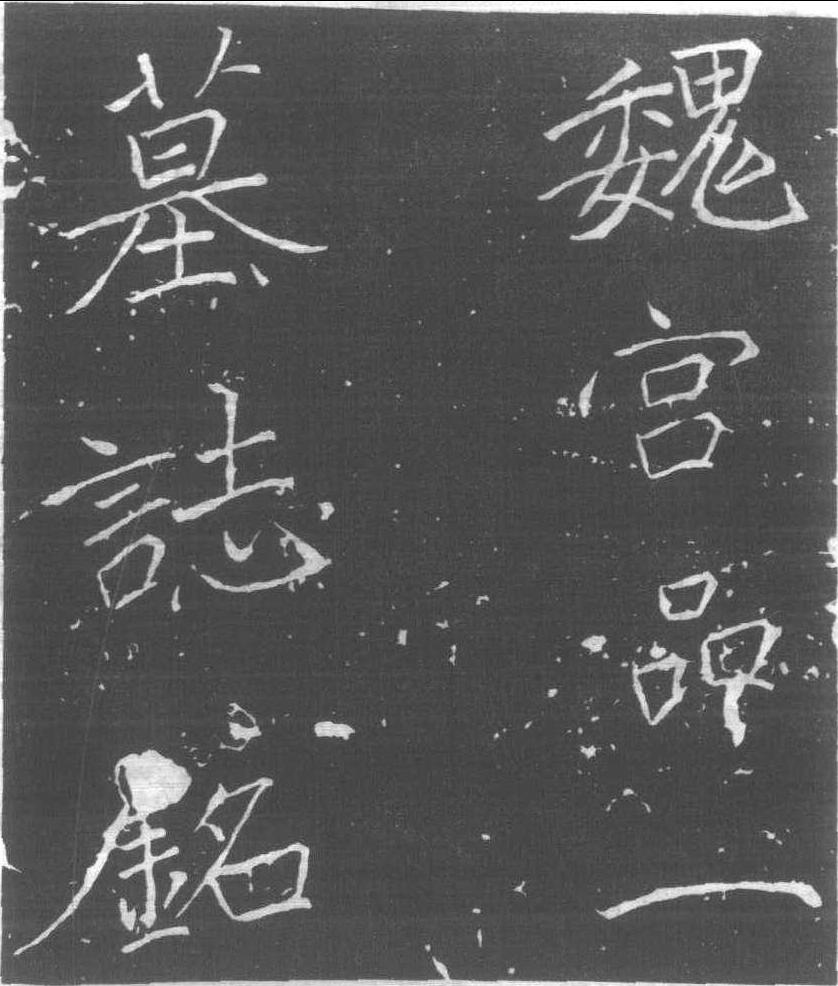 魏宮品一
墓誌銘